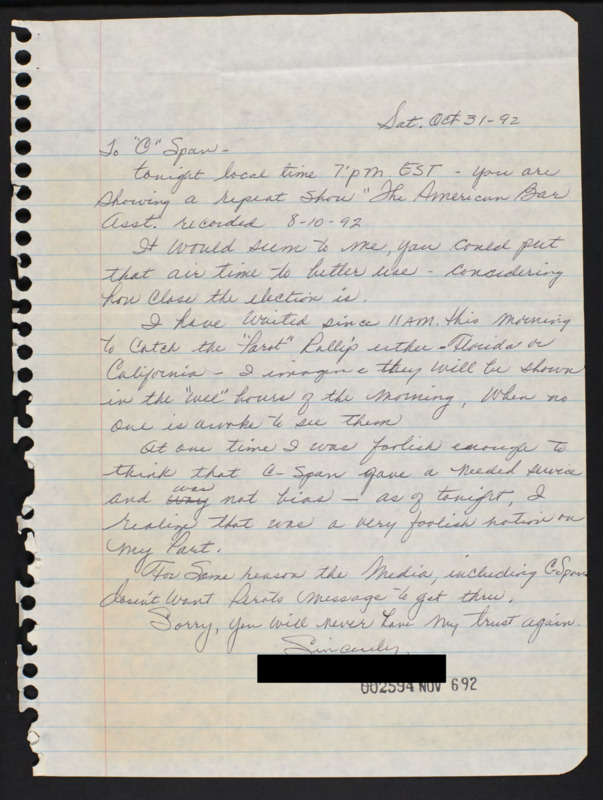 Sat. Oct 31-92
To "C" Span -
tonight local time 7:pm EST - you are
showing a repeat show "The American Bar
Asst. recorded 8-10-92
It would seem to me, you could put
that air time to better use - considering
how close the election is.
I have waited since 11 AM. this morning
to catch the "Parot" Rallys either - Florida or
California - I imagine they will be shown
in the "wee" hours of the morning, when no
one is awake to see them
At one time I was foolish enough to
think that C-Span gave a needed service
and was not bias - as of tonight, I
realize that was a very foolish notion on
my Part.
For some reason the Media, including C-Span
doesn't want Perots message to get thru.
Sorry, you will never have my trust again.
Sincerely,
002594 NOV 692